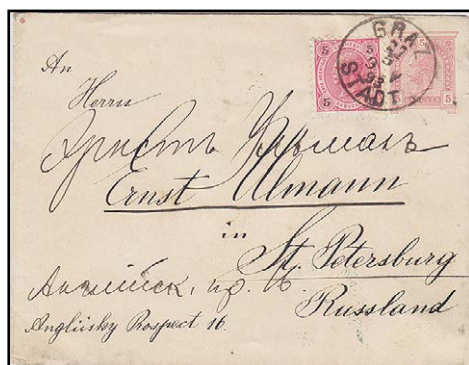 An
Herrn
Эрнстъ Ульманъ
Ernst Ulmann
in
St. Petersburg
Russland
Английск. пр. 16.
Angliisky Prospect 16.
5 5
5 5
5
GRAZ
STADT